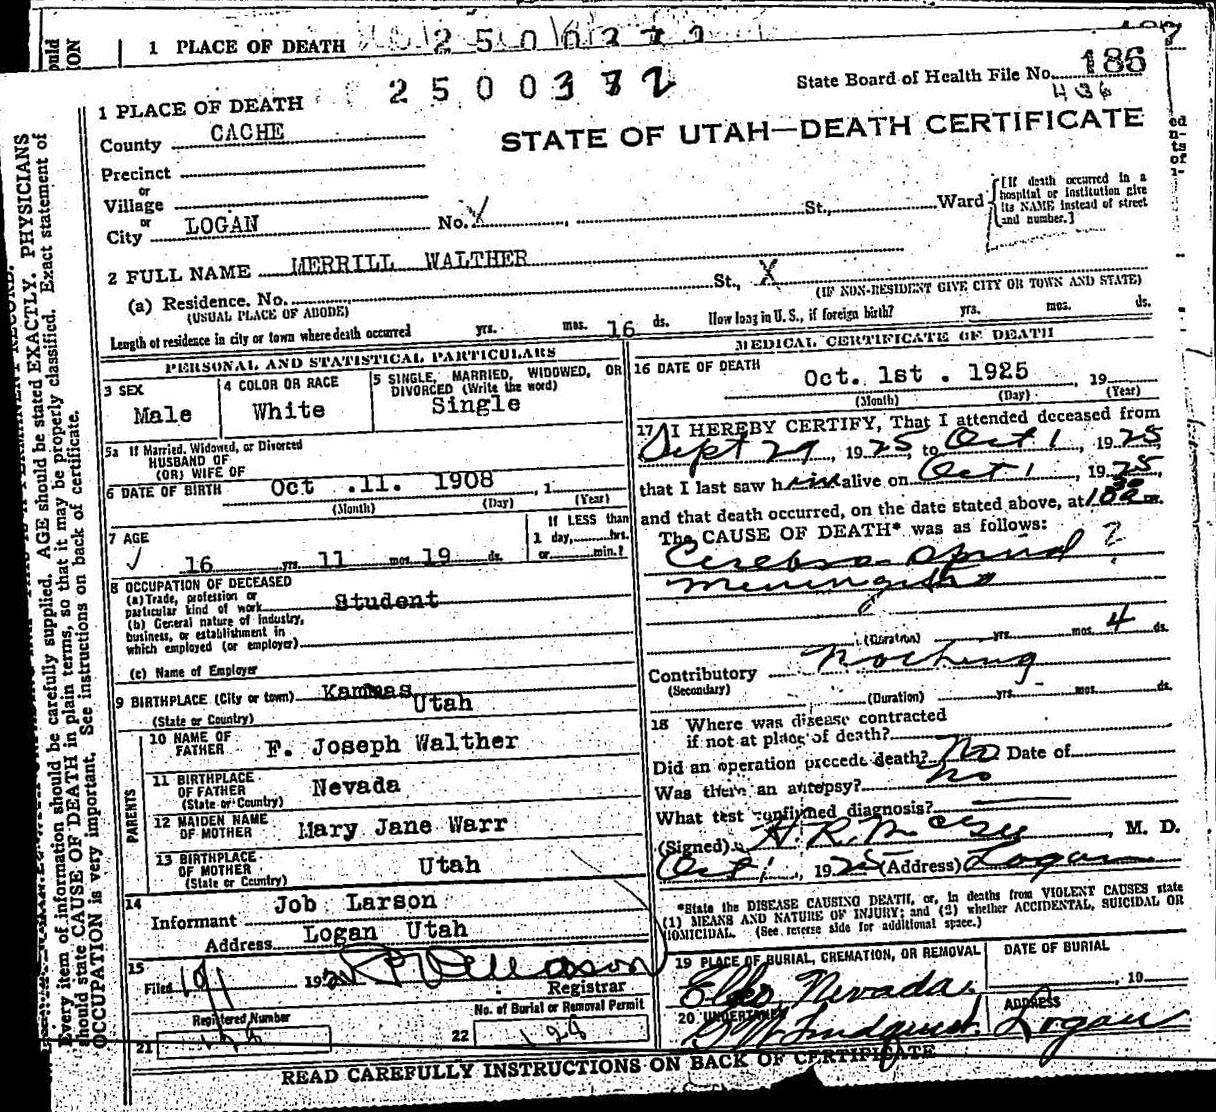 1 PLACE OF DEATH
2 5 0 0 3 7 2
State Board of Health File No. 186
436
1 PLACE OF DEATH
County CACHE
STATE OF UTAH—DEATH CERTIFICATE
Precinct
or
Village
or
City LOGAN No. X St., Ward
[If death occurred in a hospital or institution give its NAME instead of street and number.]
2 FULL NAME MERRILL WALTHER
(a) Residence. No. St., X
(USUAL PLACE OF ABODE) (IF NON-RESIDENT GIVE CITY OR TOWN AND STATE)
Length of residence in city or town where death occurred yrs. mos. 16 ds. How long in U. S., if foreign birth? yrs. mos. ds.
PERSONAL AND STATISTICAL PARTICULARS
3 SEX
Male
4 COLOR OR RACE
White
5 SINGLE, MARRIED, WIDOWED, OR DIVORCED (Write the word)
Single
5a If Married, Widowed, or Divorced
HUSBAND OF
(OR) WIFE OF
6 DATE OF BIRTH Oct .11. 1908 , 1
(Month) (Day) (Year)
7 AGE
16 yrs. 11 mos. 19 ds.
If LESS than
1 day, hrs.
or min.?
8 OCCUPATION OF DECEASED
(a) Trade, profession or
particular kind of work Student
(b) General nature of industry,
business, or establishment in
which employed (or employer)
(c) Name of Employer
9 BIRTHPLACE (City or town) Kammas
(State or Country) Utah
PARENTS
10 NAME OF
FATHER F. Joseph Walther
11 BIRTHPLACE
OF FATHER Nevada
(State or Country)
12 MAIDEN NAME
OF MOTHER Mary Jane Warr
13 BIRTHPLACE
OF MOTHER Utah
(State or Country)
14
Informant Job Larson
Address Logan Utah
15
Filed 10/1 192
Registrar
Registered Number
21
No. of Burial or Removal Permit
22 128
MEDICAL CERTIFICATE OF DEATH
16 DATE OF DEATH
Oct. 1st . 1925 , 19
(Month) (Day) (Year)
17 I HEREBY CERTIFY, That I attended deceased from
Sept 29, 1925 to Oct 1, 1925
that I last saw him alive on Oct 1, 1925,
and that death occurred, on the date stated above, at m.
The CAUSE OF DEATH* was as follows:
Cerebro spinal ?
Meningitis
(Duration) yrs. mos. 4 ds.
Contributory Nothing
(Secondary)
(Duration) yrs. mos. ds.
18 Where was disease contracted
if not at place of death?
Did an operation precede death? No Date of
Was there an autopsy? No
What test confirmed diagnosis?
(Signed) H. R. , M. D.
Oct 1, 1925 (Address) Logan
*State the DISEASE CAUSING DEATH, or, in deaths from VIOLENT CAUSES state
(1) MEANS AND NATURE OF INJURY; and (2) whether ACCIDENTAL, SUICIDAL OR
HOMICIDAL. (See reverse side for additional space.)
19 PLACE OF BURIAL, CREMATION, OR REMOVAL
Elko, Nevada.
DATE OF BURIAL
, 19
20 UNDERTAKER
Lindquist
ADDRESS
Logan
READ CAREFULLY INSTRUCTIONS ON BACK OF CERTIFICATE
Every item of information should be carefully supplied. AGE should be stated EXACTLY. PHYSICIANS
should state CAUSE OF DEATH in plain terms, so that it may be properly classified. Exact statement of
OCCUPATION is very important. See instructions on back of certificate.